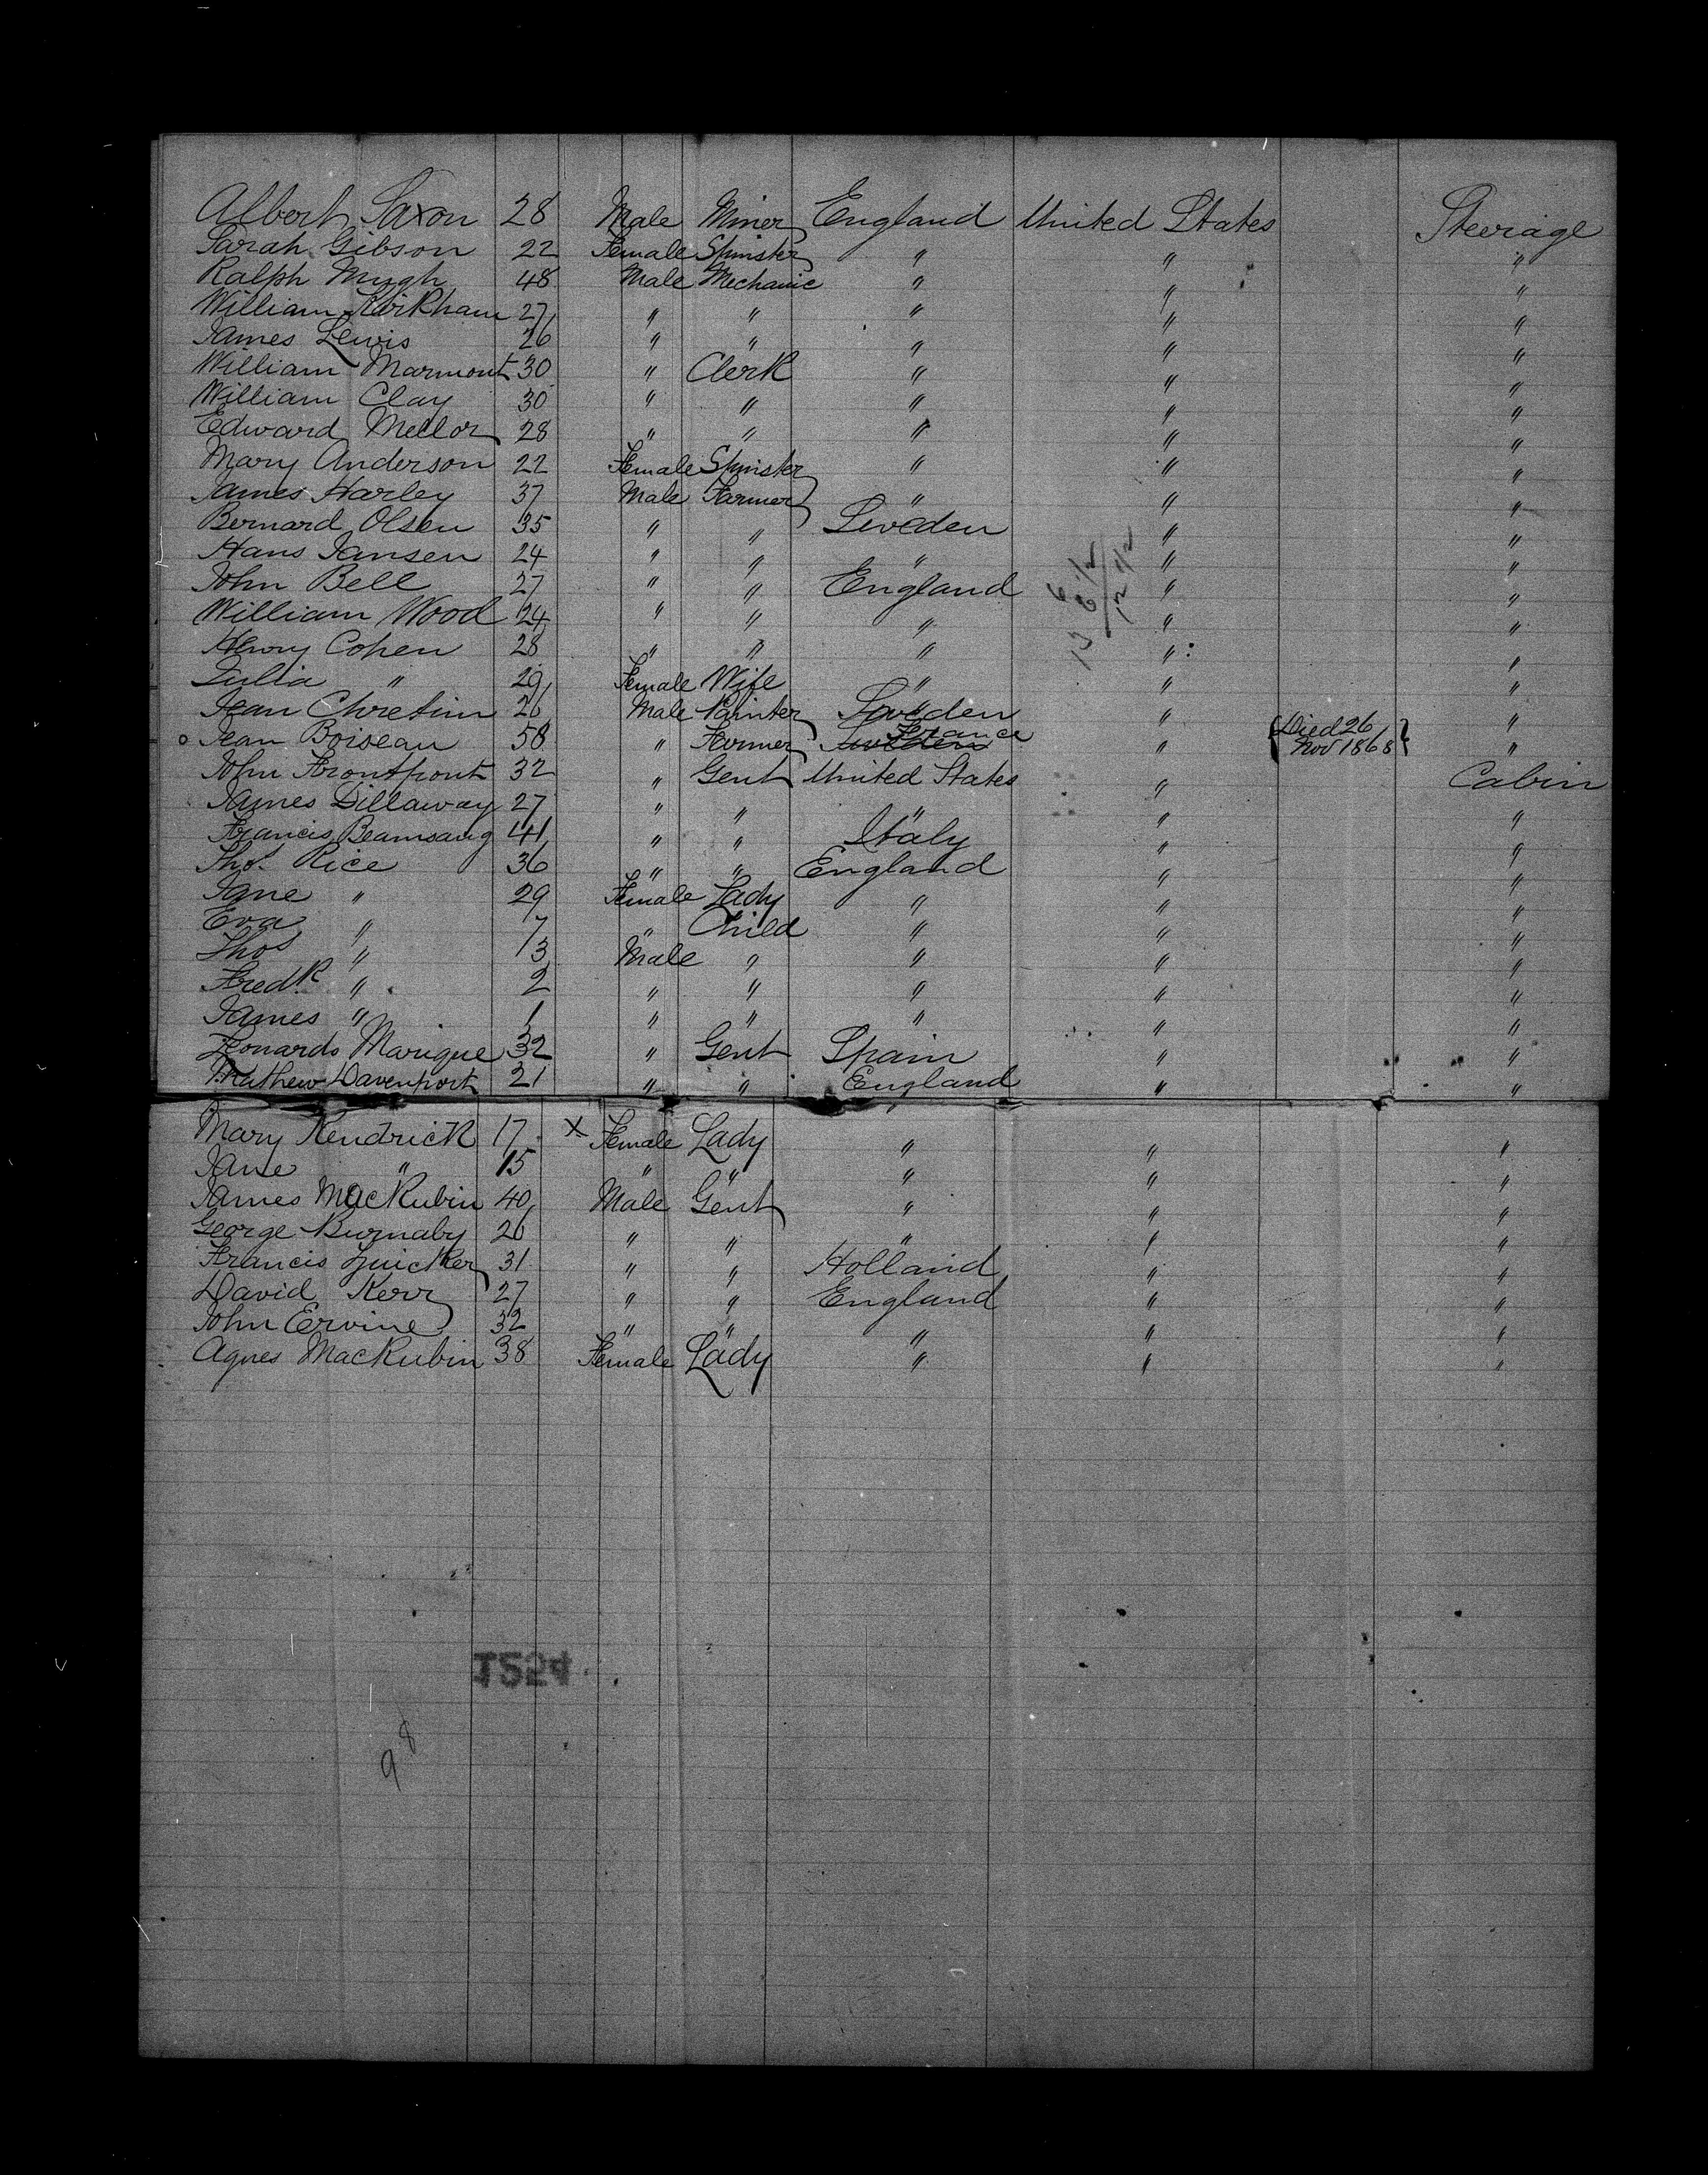 Albert Saxon 28 Male Miner England United States Steerage
Sarah Gibson 22 Female Spinster " " "
Ralph Mugh 48 Male Mechanic " " "
William Kirkham 27 " " " " "
James Lewis 26 " " " " "
William Marmont 30 " Clerk " " "
William Clay 30 " " " " "
Edward Mellor 28 " " " " "
Mary Anderson 22 Female Spinster " " "
James Harley 37 Male Farmer " " "
Bernard Olsen 35 " " Sweden " "
Hans Jansen 24 " " " " "
John Bell 27 " " England " "
William Wood 24 " " " " "
Henry Cohen 28 " " " " "
Julia " 29 Female Wife " " "
Jean Chretien 26 Male Painter Sweden " "
Jean Boiseau 58 " Farmer France " Died 26 Nov 1868 "
John Frontfront 32 " Gent United States " Cabin
James Dillaway 27 " " " " "
Francis 41 " " Italy " "
Thos. Rice 36 " " England " "
Jane " 29 Female Lady " " "
Eva " 7 " Child " " "
Thos " 3 Male " " " "
Fredk " 2 " " " " "
James " 1 " " " " "
Leonardo Marigue 32 " Gent Spain " "
Mathew Davenport 21 " " England " "
Mary Kendrick 17 X Female Lady " " "
Jane " 15 " " " " "
James MacRubin 40 Male Gent " " "
George Burnaby 26 " " " " "
Francis 31 " " Holland " "
David Kerr 27 " " England " "
John Ervine 32 " " " " "
Agnes MacRubin 38 Female Lady " " "
98